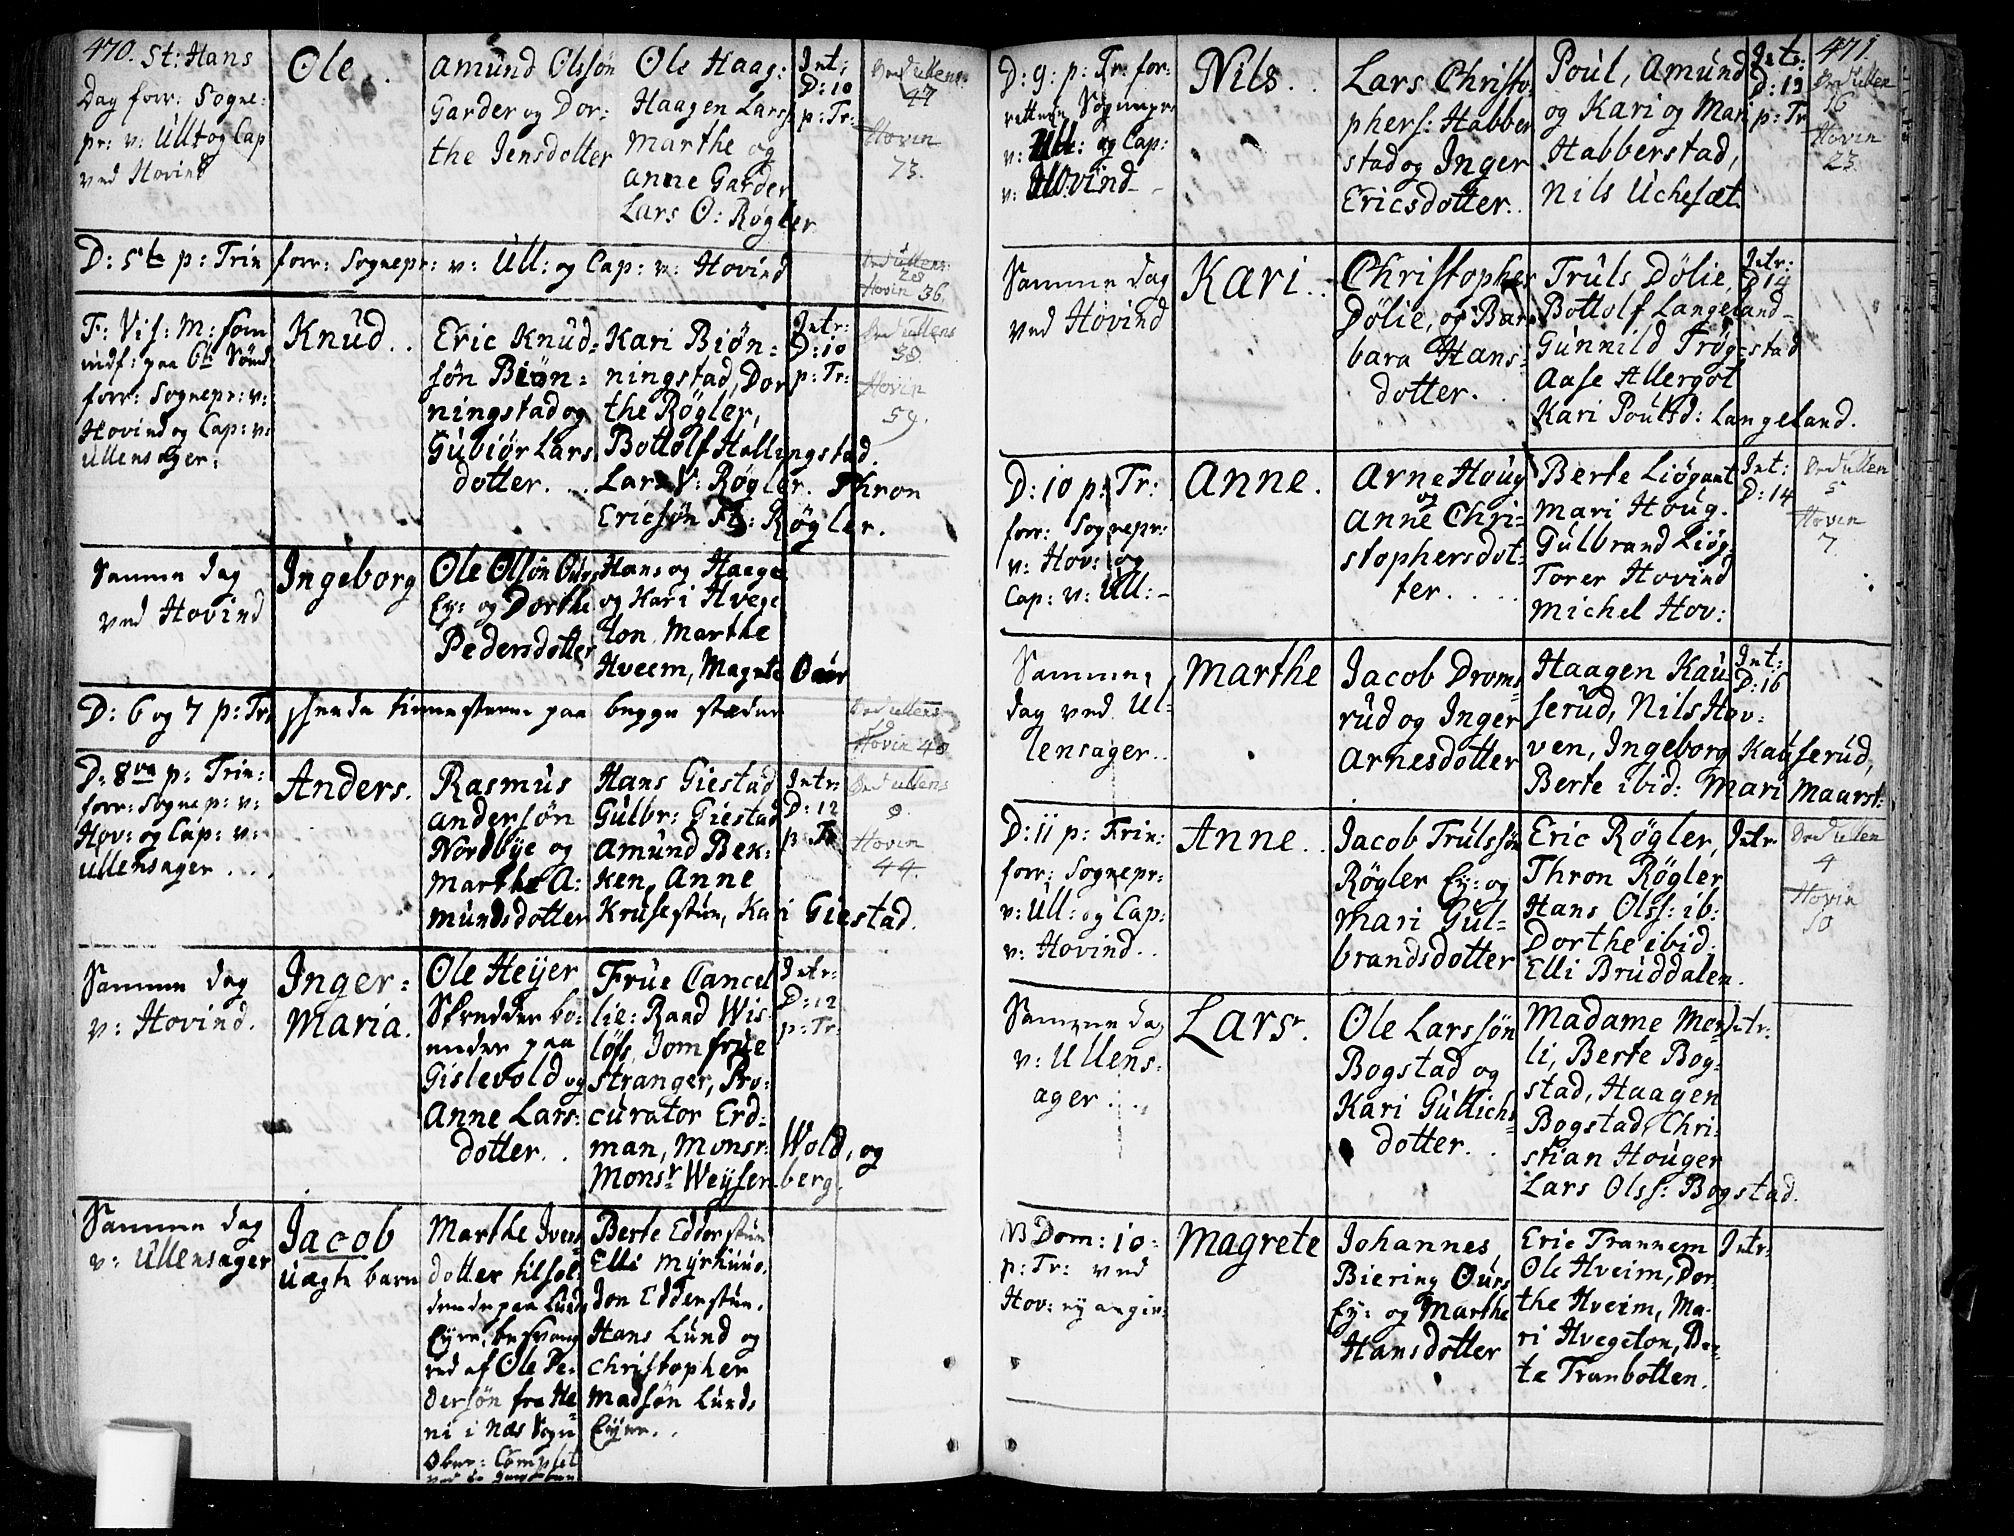 470. St: Hans
Dag forr: Sogne:
pr: v: Ull: og Cap
ved Hovind
Ole.
Amund Olssøn
Garder og Dor-
the Jensdotter
Ole Haag:
Haagen Larss
Marthe og
Anne Garder
Lars O: Røgler
Int:
D: 10
p: Tr:
47
Hovin
73.
D: 5te p: Trin forr: Sognepr: v: Ull: og Cap: v: Hovind
28
Hovin 36.
F: Vis: M: som
indf: paa 6te Sønd
forr: Sognepr: v:
Hovind og Cap: v:
Ullensager:
Knud..
Eric Knud-
søn Biøn-
ningstad og
Gubiør Lars
dotter.
Kari Biøn-
ningstad, Dor
the Røgler,
Bottolf Hallingstad.
Lars V: Røgler. Thron
Ericsøn Røgler.
Intr:
D: 10
p: Tr:
38
Hovin
59.
Samme dag
ved Hovind
Ingeborg
Ole Olssøn Ours
Ey: og Dorthe
Pedersdotter
Hans og Haage
og Kari Hvege
ton Marthe
Hveem, Magrete Ouer
D: 6 og 7 p: Tr: skeede tienesterne paa begge stæder
Hovin 40
D: 8va p: Trin:
forr: Sognep: v:
Hov: og Cap: v:
Ullensager...
Anders.
Rasmus
Andersøn
Nordbye og
Marthe A:
mundsdotter
Hans Giestad
Gulbr: Giestad
Amund Bek-
ken, Anne
Krusestun, Kari Giestad.
Intr:
D: 12
p: Tr
9.
Hovin
44.
Samme dag
v: Hovind.
Inger=
Maria.
Ole Heyer
Skredder bo-
ender paa
Gislevold og
Anne Lars:
dotter..
Frue Cancel
lie: Raad Wis-
løfs, Jomfrue
Stranger, Pro-
curator Erd-
man, Monsr: Wold, og
Monsr Weysenberg.
Intr:
D: 12
p: Tr:
Samme dag
v: Ullensager
Jacob
Uægte barn
Marthe Ivers
dotter tilhol-
dende paa Lunds
Eyre, besvang
red af Ole Pe-
dersøn fra He
ni i Næs Sogn
Berte Edderstun
Elli Myrhuus.
Jon Edderstun.
Hans Lund og
Christopher
Madsøn Lunds
Eyre..
471
D: 9: p: Tr: for-
rettede Sognepr:
v: Ull: og Cap:
v: Hovind
Nils..
Lars Christo
phers: Habber
stad og Inger
Ericsdotter.
Poul, Amund
og Kari og Mari
Habberstad,
Nils Uchesæt.
Intr:
D: 12
p: Tr
16
Hovin
23.
Samme dag
ved Hovind
Kari..
Christopher
Dølie, og Bar
bara Hans-
dotter.
Truls Dølie,
Bottolf Langeland-
Gunnild Trøgstad
Aase Allergot
Kari Poulsd: Langeland.
Intr:
D 14
D: 10 p: Tr:
forr: Sognepr:
v: Hov: og
Cap: v: Ull:-
Anne.
Arne Houg
og
Anne Chri-
stophersdot-
ter....
Berte Liøgaat
Mari Houg.
Gulbrand Liøg:
Torer Hovind
Michel Hov:
Int:
D: 14
5
Hovin
7.
Samme
dag ved Ul-
lensager..
Marthe
Jacob Droms
rud og Inger
Arnesdotter
Haagen Kau
serud, Nils Hov-
ven, Ingeborg Kauserud,
Berte ibid: Mari Maurst:
Int:
D: 16
D: 11 p: Trin:
forr: Sognepr:
v: Ull: og Cap:
v: Hovind..
Anne..
Jacob Trulssøn
Røgler Ey: og
Mari Gul-
brandsdotter
Eric Røgler,
Thron Røgler
Hans Olss: ib:
Dorthe ibid:
Elli Bruddalen.
Intr
4
Hovin
10
Samme dag
v: Ullens-
ager...
Lars.
Ole Larssøn
Bogstad og
Kari Gullichs
dotter..
Madame Mor
li, Berte Bog-
stad, Haagen
Bogstad, Chri-
stian Houger
Lars Olss: Bogstad.
Intr:
NB Dom: 10:
p: Tr: ved
Hov: ey angiv:
Magrete
Johannes
Biering Ours
Ey: og Marthe
Hansdotter
Eric Trannem
Ole Hveim, Dor-
the Hveim, Ma-
ri Hvegeton, Ber-
te Tranbotten.
Intr: